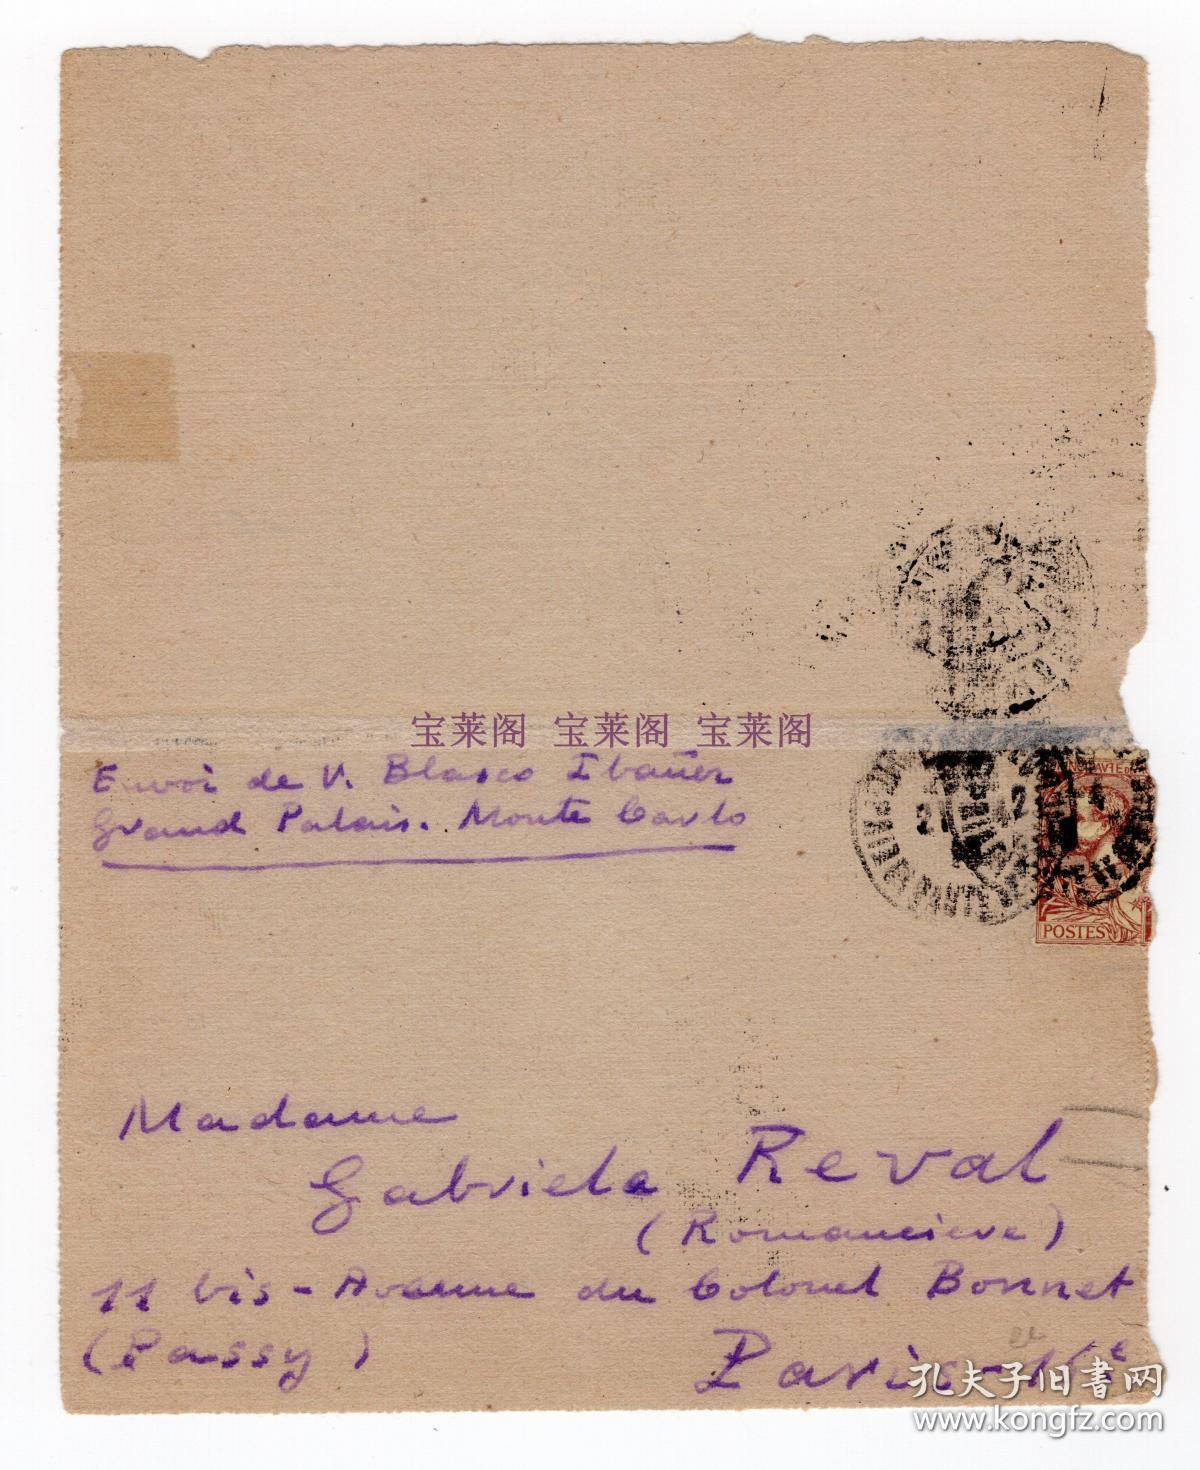 宝莱阁 宝莱阁 宝莱阁
Envoi de V. Blasco Ibañez
Grand Palais. Monte Carlo
21 42
POSTES
Madame
Gabriela Reval
(Romanciere)
11 bis - Avenue du Colonel Bonnet
(Passy) Paris -
孔夫子旧书网
www.kongfz.com